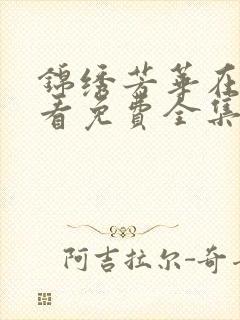 锦绣芳华在
看免费全集
阿吉拉尔-奇